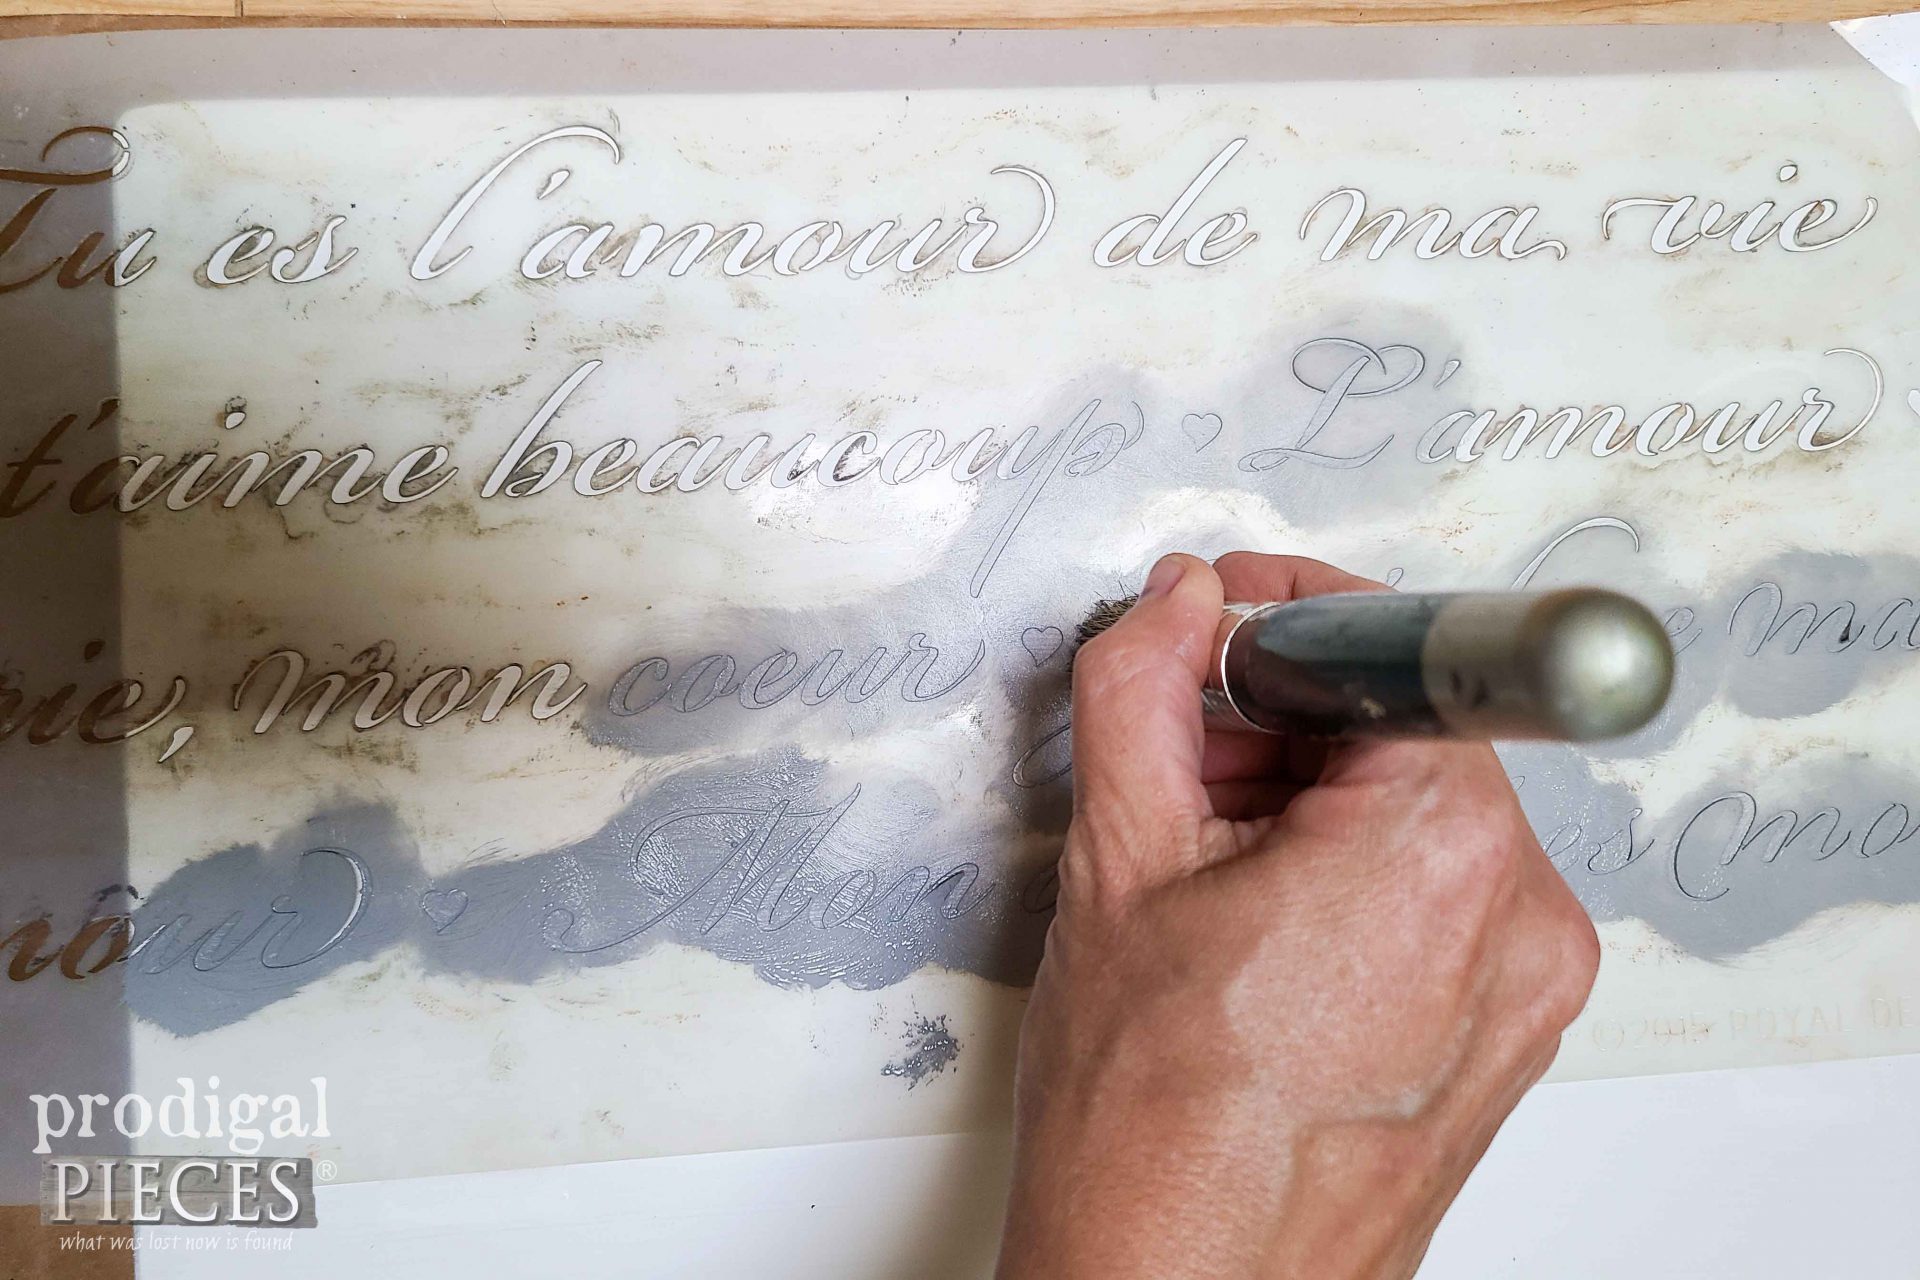 Tu es l'amour de ma vie
t'aime beaucoup ♥ L'amour
vie, mon coeur ♥ de ma
mour ♥ Mon les mo
©2015 ROYAL DE
prodigal
PIECES®
what was lost now is found